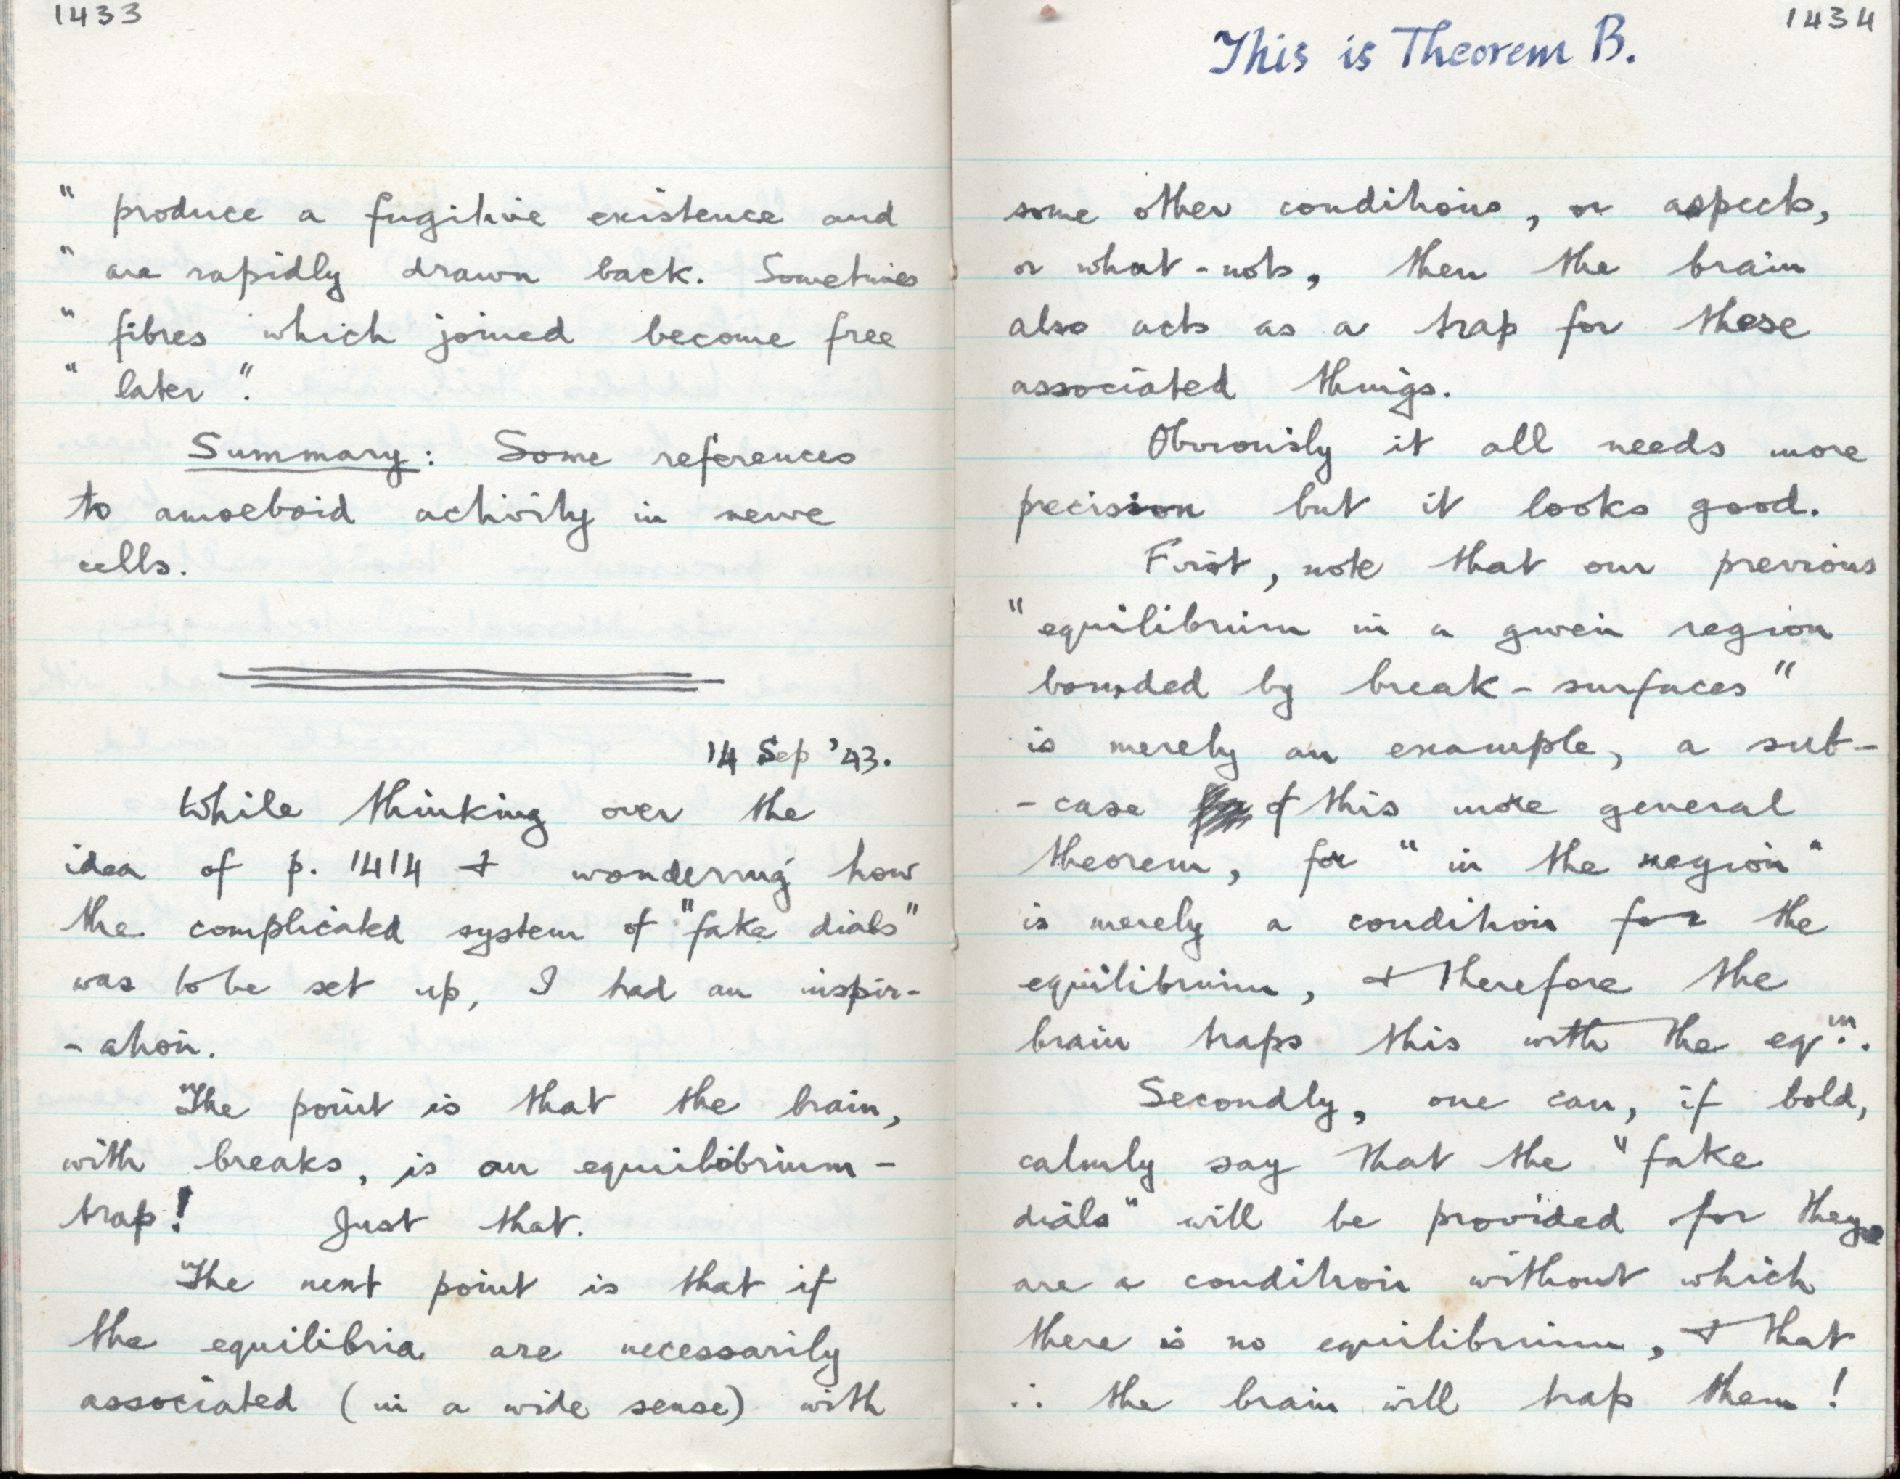 1433
" produce a fugitive existence and
" are rapidly drawn back. Sometimes
" fibres which joined become free
" later".
Summary: Some references
to amoeboid activity in nerve
cells.
14 Sep '43.
While thinking over the
idea of p. 1414 & wondering how
the complicated system of "fake dials"
was to be set up, I had an inspir-
-ation.
The point is that the brain,
with breaks, is an equilibrium-
trap! Just that.
The next point is that if
the equilibria are necessarily
associated (in a wide sense) with
1434
This is Theorem B.
some other conditions, or aspects,
or what-nots, then the brain
also acts as a trap for these
associated things.
Obviously it all needs more
precision but it looks good.
First, note that our previous
"equilibrium in a given region
bounded by break-surfaces"
is merely an example, a sub-
-case of this more general
theorem, for "in the region"
is merely a condition for the
equilibrium, & therefore the
brain traps this with the eqᵐ.
Secondly, one can, if bold,
calmly say that the "fake
dials" will be provided for they
are a condition without which
there is no equilibrium, & that
∴ the brain will trap them!